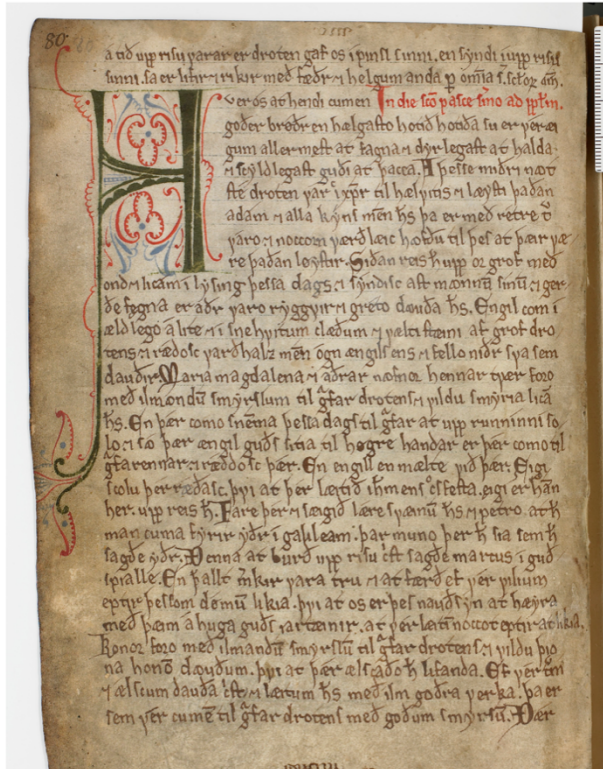 80
a tið upp risu varar er droten gaf os i pinsl sinni. en syndi i upp risu
sinni. sa er lifir ⁊ rikir með fæðr ⁊ helgum anda ꝑ omia s. sclor am.
A ver os at hendi cumen In die sco pasce sermo ad pplm.
goðer brøðr en hælgasto hotið hotiða su er ver æi
gum aller mest at fagna ⁊ dyrlegast at halda
⁊ scyldlegast guði at þacca. A þesse miðri not
ste droten varˢ ixpr til hælvitis ⁊ løysti þaðan
adam ⁊ alla kyns men hs þa er með retre
varo ⁊ noccorn værðlæic hofðu til þes at þæir væ
re þaðan løystir. Siðan reis h upp or grof með
ond ⁊ licam i lysing þessa dags ⁊ syndisc aft monnum sinum ⁊ ger
ðe fegna er aðr varo ryggvir ⁊ greto douða hs. Engil com i
ældlego a lite ⁊ i snehvitum clæðum ⁊ vælti stæini af grof dro
tens ⁊ rædosc varðhalz men ogn ængils ens ⁊ fello niðr sva sem
dauðir. Maria magdalena ⁊ aðrar nofnor hennar tvær foro
með ilmondum smyrslum til gfar drotens ⁊ vildu smyria lica
hs. En þær como snemma þessa dags til gfar at upp runninni so
lo ⁊ so þær ængil guðs sitia til høgre handar er þær como til
gfarennar ⁊ ræddosc þær. En engill en mælte við þær. Eigi
scolu þer rædasc. þvi at þer lætið ihmens crosfesta. eigi er han
her. upp reis h. Fare þer ⁊ sægið lære svænum hs ⁊ petro. at h
man cuma fyrir yðr i galileam. þar muno þer h sia sem h
sagðe yðr. Þenna at burð upp risu cst sagðe marcus i guð
spialle. En þallt mkir vara tru ⁊ at færð ef ver vilium
eptir þessom dømum likia. þvi at os er þes nauðsyn at høyra
með þæim a huga guðs iartæinir. at ver lætum noccot eptir at likia.
Konor foro með ilmandum smyrslum til gfar drotens ⁊ vildu þio
na honom douðum. þvi at þær ælscaðo h lifanda. Ef ver trum
⁊ ælscum dauða cst ⁊ lætum hs með ilm goðra verka. þa er
sem ver cumem til gfar drotens með goðum smyrslum. Þær